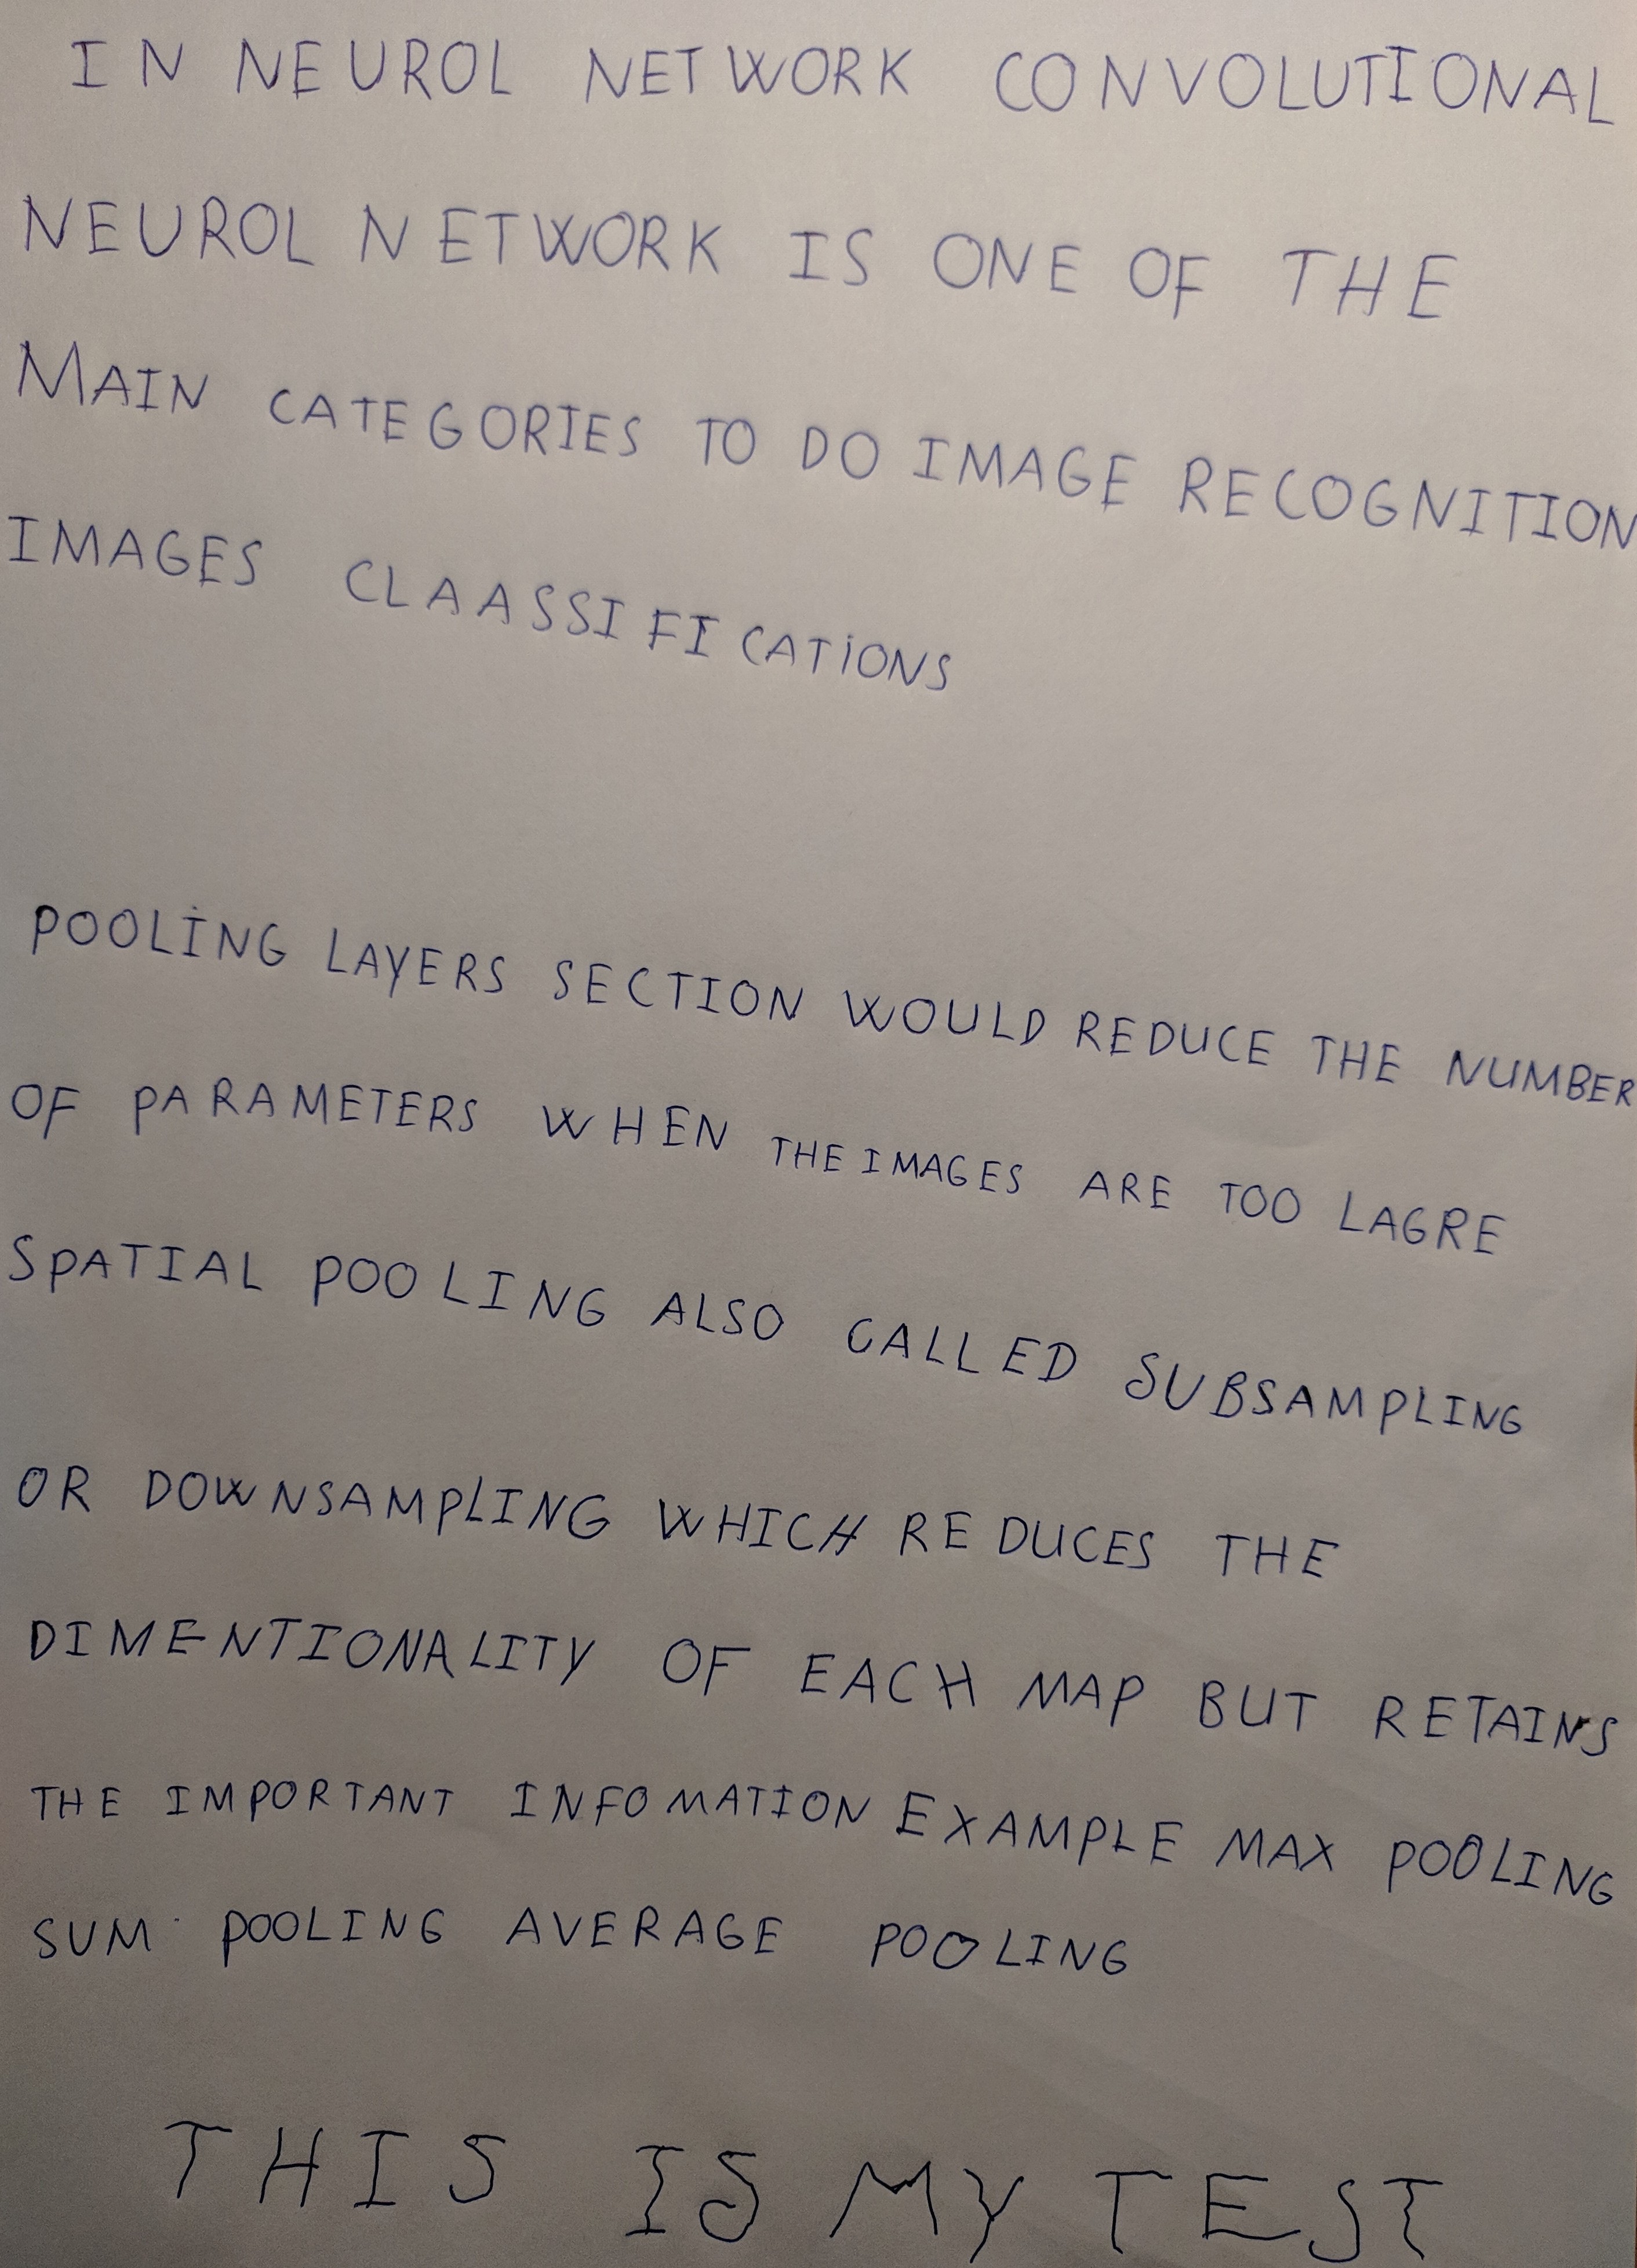 IN NEUROL NETWORK CONVOLUTIONAL
NEUROL NETWORK IS ONE OF THE
MAIN CATEGORIES TO DO IMAGE RECOGNITION
IMAGES CLAASSIFICATIONS
POOLING LAYERS SECTION WOULD REDUCE THE NUMBER
OF PARAMETERS WHEN THE IMAGES ARE TOO LAGRE
SPATIAL POOLING ALSO CALLED SUBSAMPLING
OR DOWNSAMPLING WHICH REDUCES THE
DIMENTIONALITY OF EACH MAP BUT RETAINS
THE IMPORTANT INFOMATION EXAMPLE MAX POOLING
SUM POOLING AVERAGE POOLING
THIS IS MY TEST